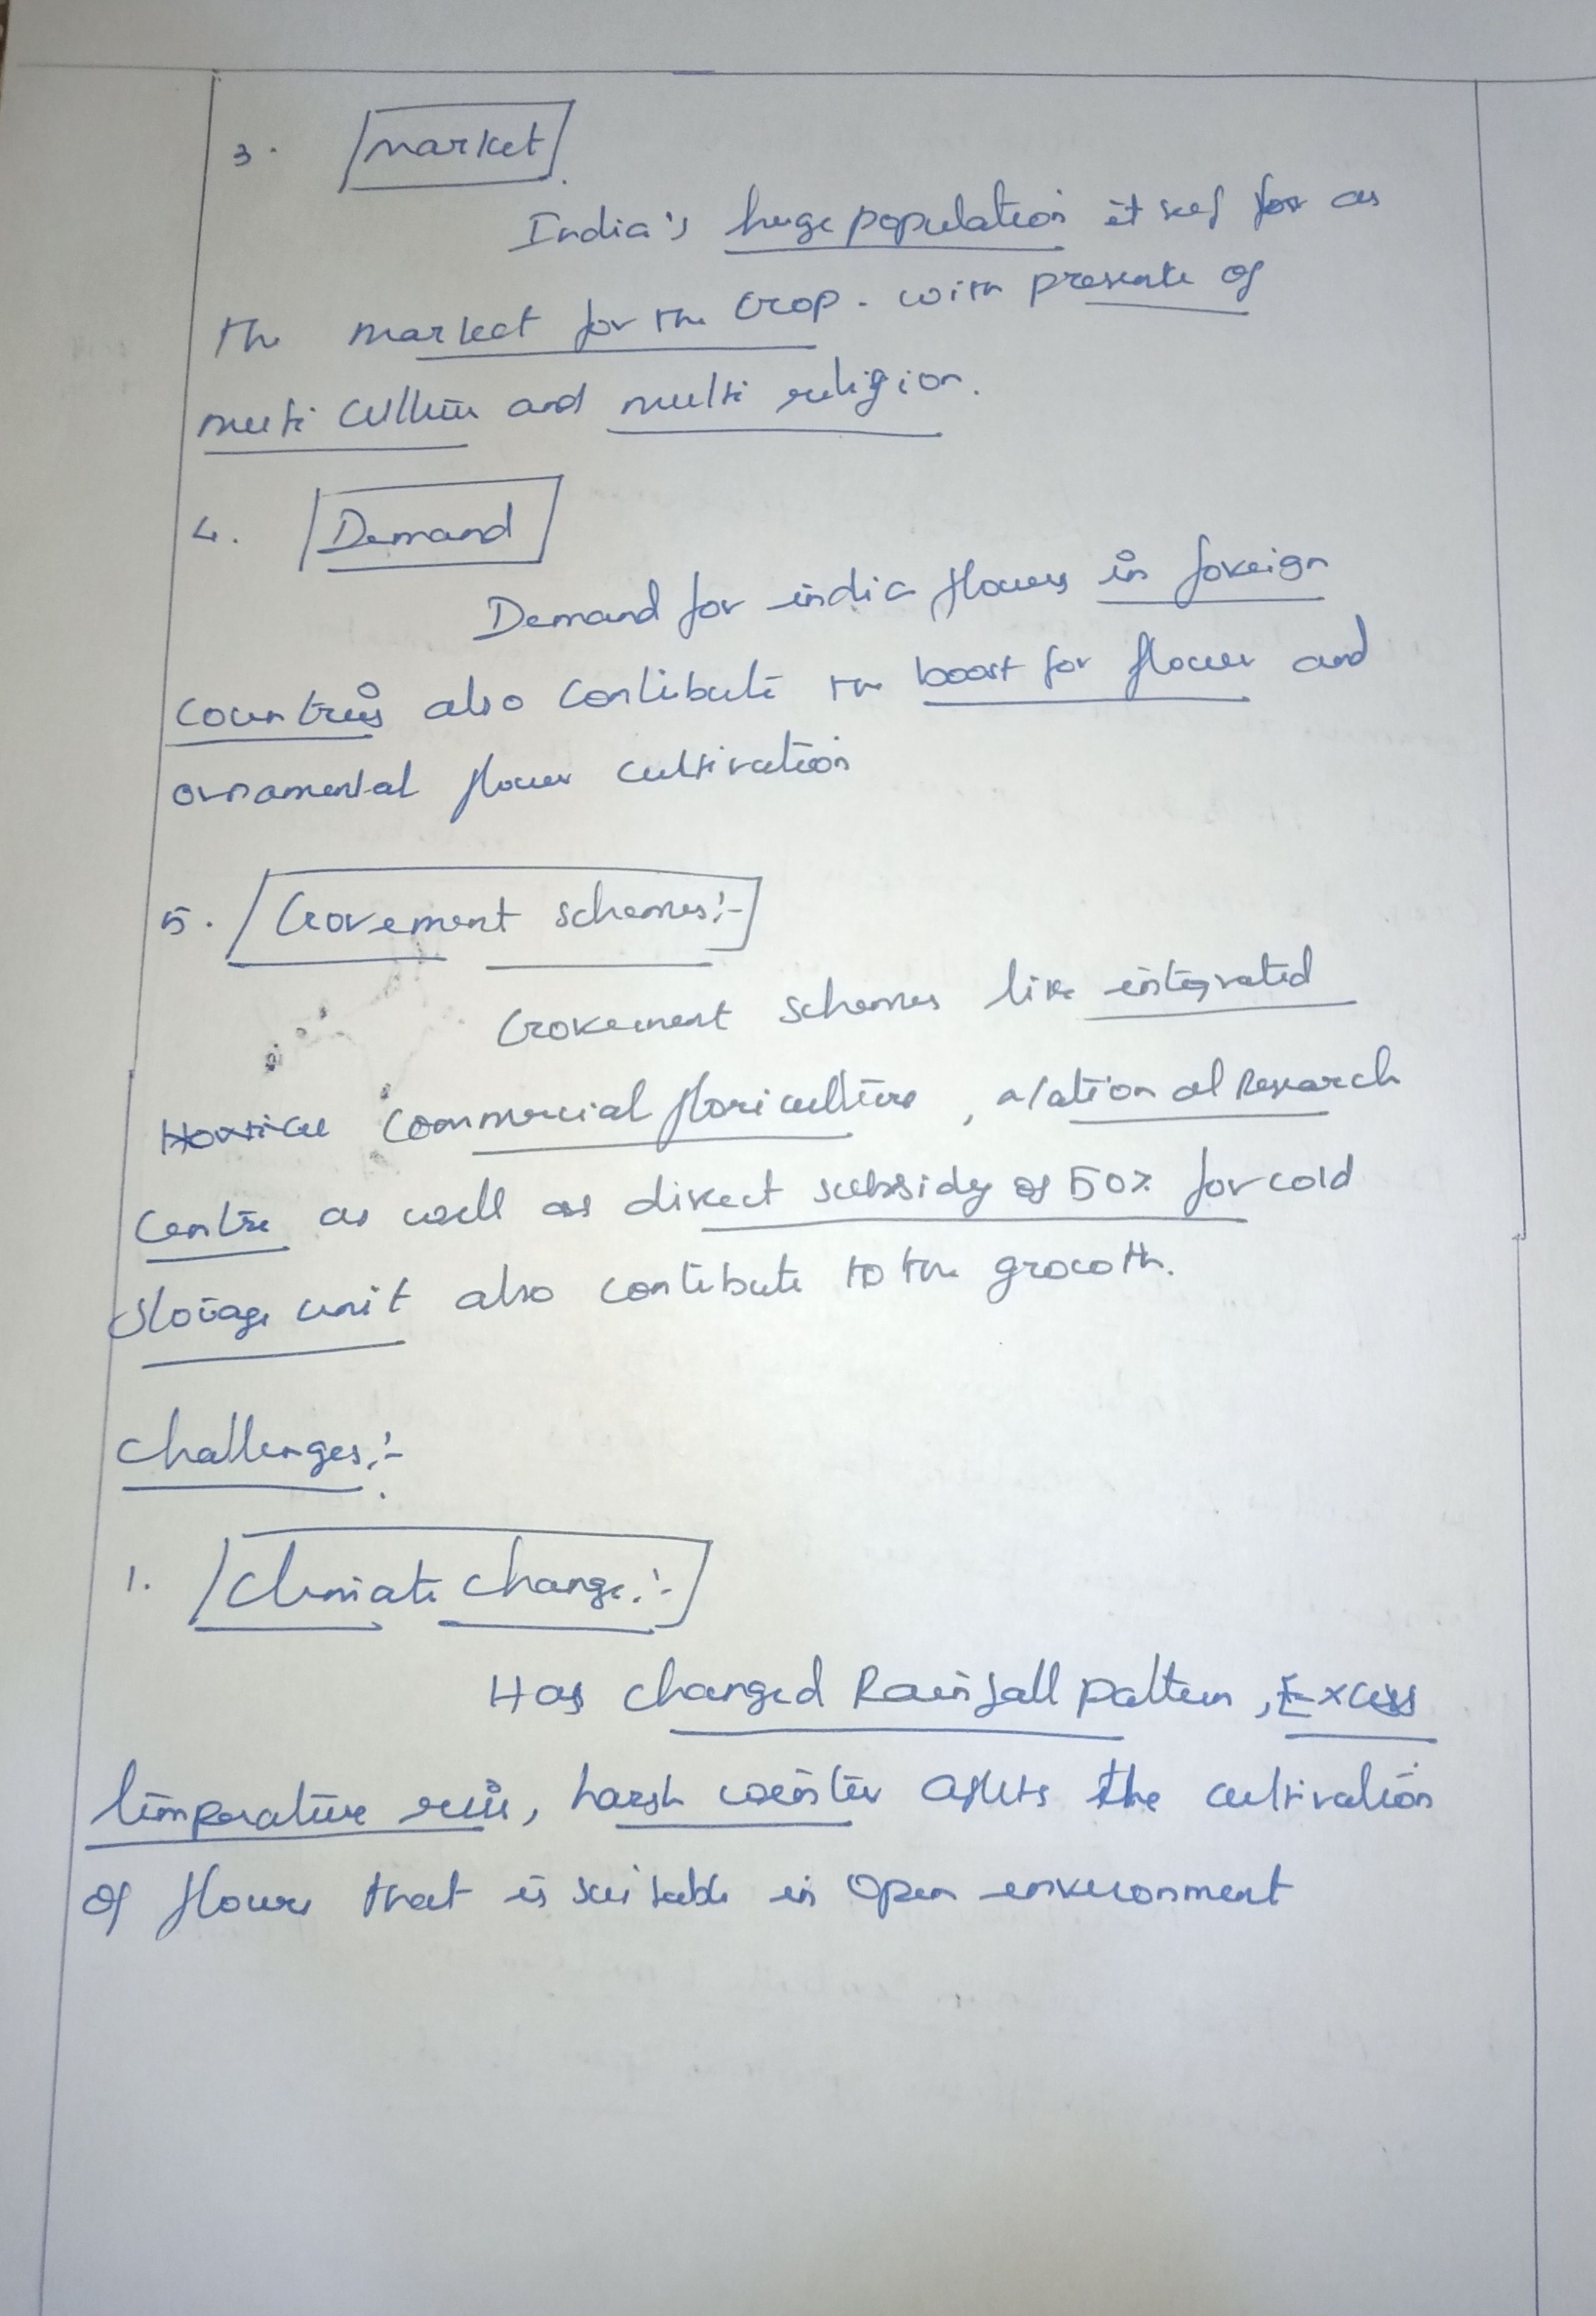 3. market
India's huge population it self for as
the market for the crop. with presente of
multi culture and multi religion.
4. Demand
Demand for india flowers in foreign
countries also contibute the boost for flower and
ornamental flower cultivation
5. Govement schemes:-
Govement schemes like integrated
commercial floriculture, National Research
Centre as well as direct subsidy of 50% for cold
storage unit also contibute to the growth.
Challenges:-
1. Climate change:-
Has changed Rainfall pattern, Excess
temperature rise, harsh winter affects the cultivation
of flowers that is suitable in open environment